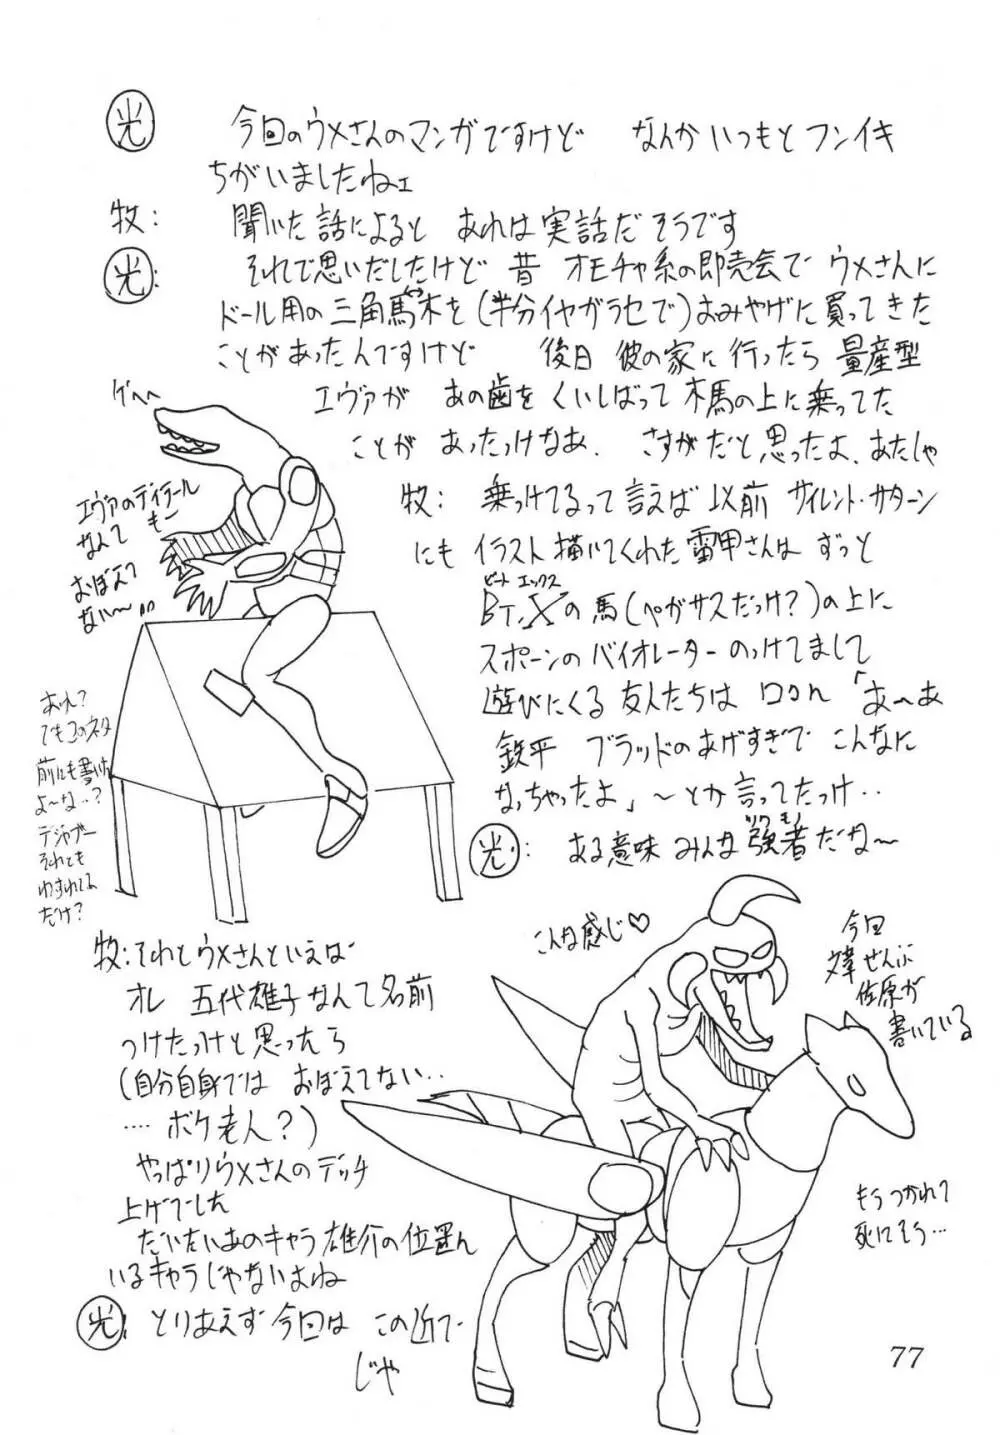 光 今回のウメさんのマンガですけど なんかいつもとフンイキ
ちがいましたねェ
牧: 聞いた話によると あれは実話だそうです
光: それで思いだしたけど 昔 オモチャ系の即売会で ウメさんに
ドール用の三角馬木を(半分イヤガラセで)おみやげに買ってきた
ことがあったんですけど 後日 彼の家に行ったら 量産型
エヴァが あの歯をくいしばって木馬の上に乗ってた
ことが あったっけなあ. さすがだと思ったよ、あたしゃ
ゲヘヘ
エヴァのディテール
なんて もー
おぼえて
ない〜
牧: 乗っけてるって言えば 以前 サイレント・サターン
にも イラスト描いてくれた雷甲さんは ずっと
ビート エックス
BT,Xの馬(ペガサスだっけ?)の上に
スポーンの バイオレーター のっけてまして
遊びにくる 友人たちは 口々に「あ〜あ
鉄平 ブラッドのあげすぎで こんなに
なっちゃったよ」〜とか言ってたっけ..
あれ?
でもこのネタ
前にも書いた
よ〜な..?
デジャブー
それとも
わすれてる
だけ?
ツワモノ
光: ある意味 みんな強者だな〜
こんな感じ♡
今回
文章 ぜんぶ
佐原が
書いている
牧: それとウメさんといえば
オレ 五代雄子なんて名前
つけたっけと思ったら
(自分自身では おぼえてない..
.... ボケ老人?)
やっぱりウメさんのデッチ
上げでした
だいたいあのキャラ雄介の位置ん
いるキャラじゃないよね
もうつかれて
死にそう...
光: とりあえず今回は この辺で
じゃ
77